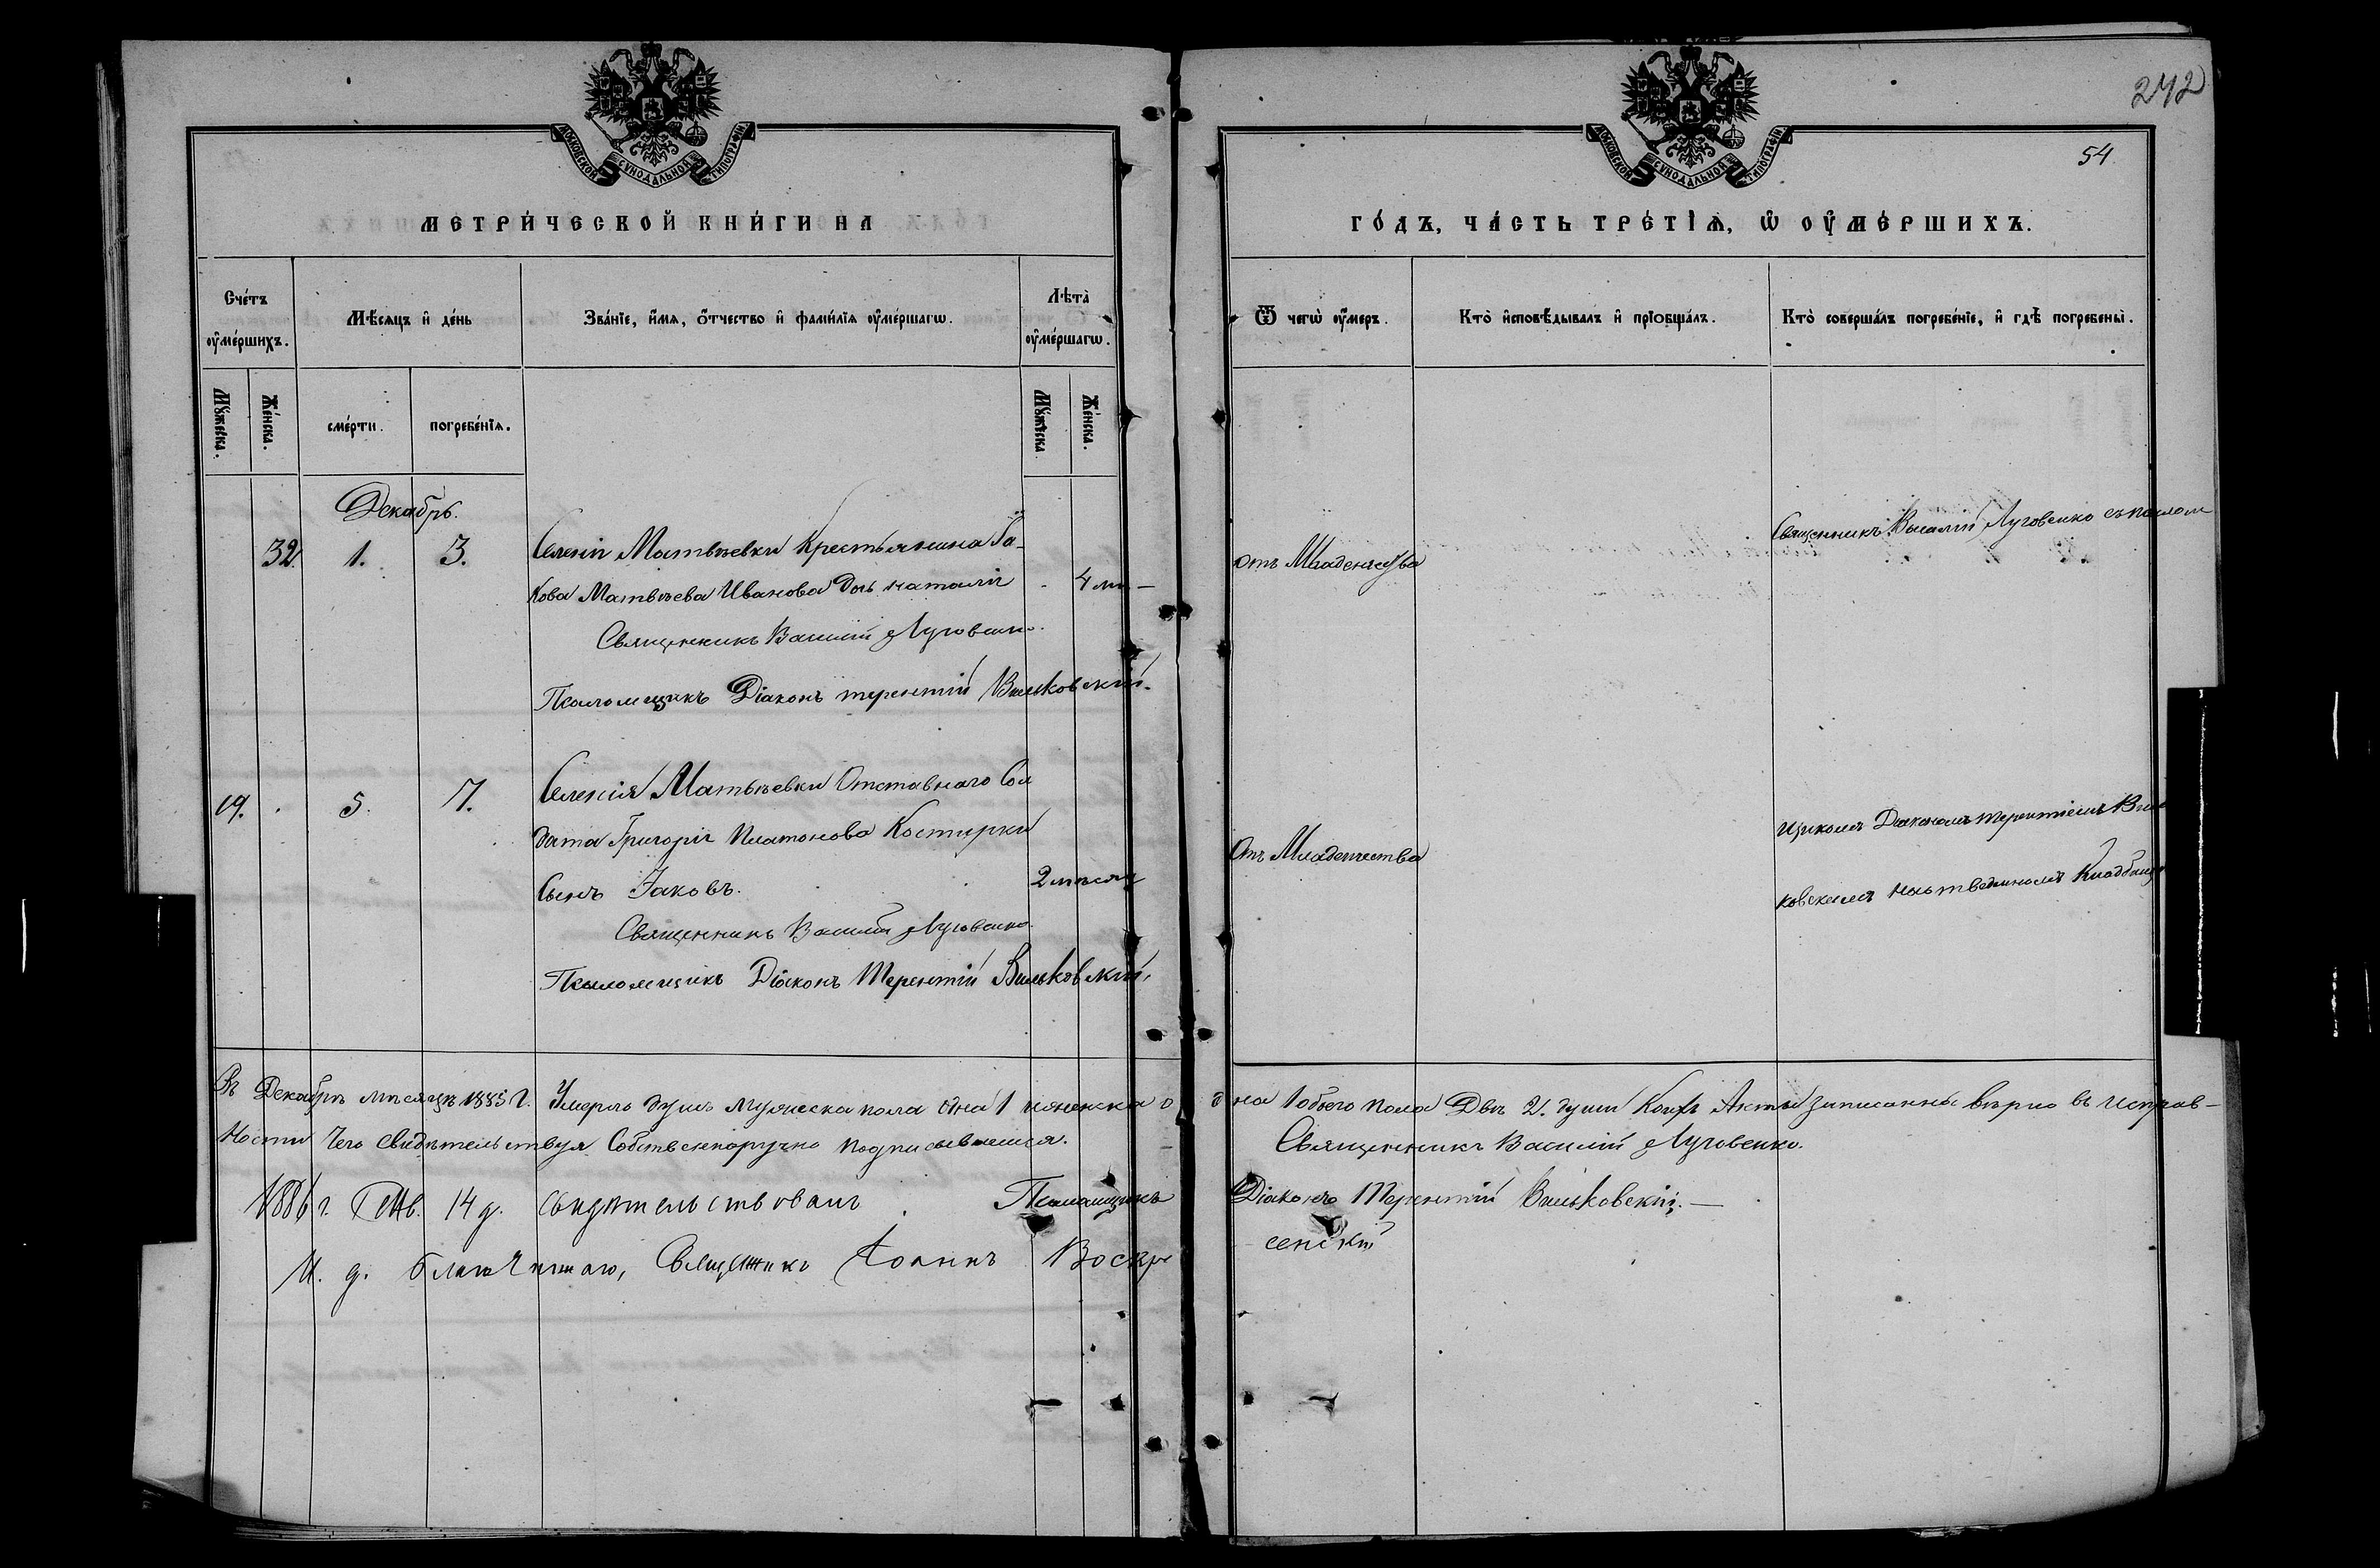 242
54
МОСКОВСКОЙ СѴНОДАЛЬНОЙ ТИПОГРАФІИ
МОСКОВСКОЙ СѴНОДАЛЬНОЙ ТИПОГРАФІИ
МЕТРИ́ЧЕСКОЙ КНИ́ГИ НА
ГО́ДЪ, ЧА́СТЬ ТРЕ́ТІѦ, Ѡ҆ ОУ҆МЕ́РШИХЪ.
Сче́тъ оу҆ме́ршихъ.
Мѣ́сяцъ и҆ де́нь
Зва́нїе, и҆́мя, ѻ҆́тчество и҆ фами́лїя оу҆ме́ршагѡ.
Лѣта̀ оу҆ме́ршагѡ.
Ѿ чегѡ̀ оу҆́меръ.
Кто̀ и҆сповѣ́дывалъ и҆ прїобща́лъ.
Кто̀ соверша́лъ погребе́нїе, и҆ гдѣ̀ погребены̀.
Му́жеска.
Же́нска.
сме́рти.
погребе́нїѧ.
Му́жеска
Же́нска.
Декабрь.
32. 1. 3. Селенія Матвѣевки Крестьянина Іа-
кова Матвѣева Иванова дочь Наталія 4 м.
Священникъ Василій Луговенко.
Псаломщикъ Діаконъ Терентій Вильковскій.
отъ Младенчества
Священникъ Василій Луговенко съ псалом
19. 5. 7. Селенія Матвѣевки Отставнаго Сол
дата Григорія Платонова Костирки
Сынъ Іаковъ. 2 мѣсяц
Священникъ Василій Луговенко.
Псаломщикъ Діаконъ Терентій Вильковскій.
Отъ Младенчества
щикомъ Діакономъ Терентіемъ Виль
ковскимъ на отведенномъ Кладбищѣ
Въ Декабрѣ мѣсяцѣ 1885 г. Умерло душъ мужеска пола одна 1 женска одна 1 обоего пола Двѣ 2. души Коихъ Акты записанны вѣрно въ исправ-
ности Чего свидѣтельствуя Собственноручно подписываемся. Священникъ Василій Луговенко.
Псаломщикъ Діаконъ Терентій Вильковскій.
1886 г. Генв. 14 д. свидѣтельствовалъ
И. д. благочиннаго, Священникъ Іоаннъ Воскресенскій